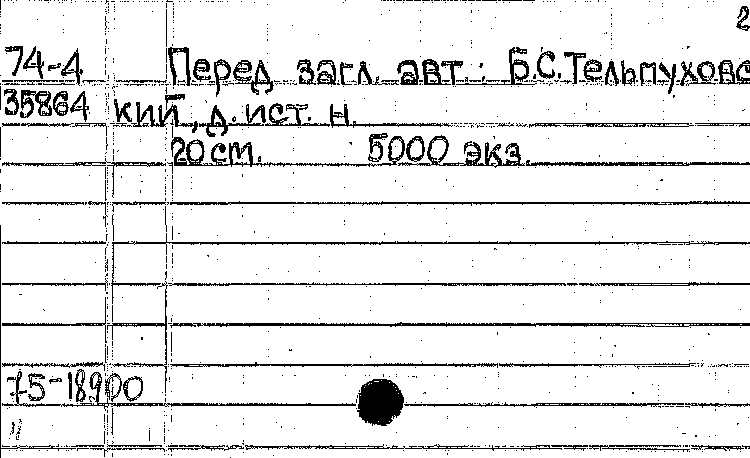 2
74-4 Перед загл. авт.: Б.С.Тельпуховс
35864 кий, д. ист. н.
20 см. 5000 экз.
75-18900